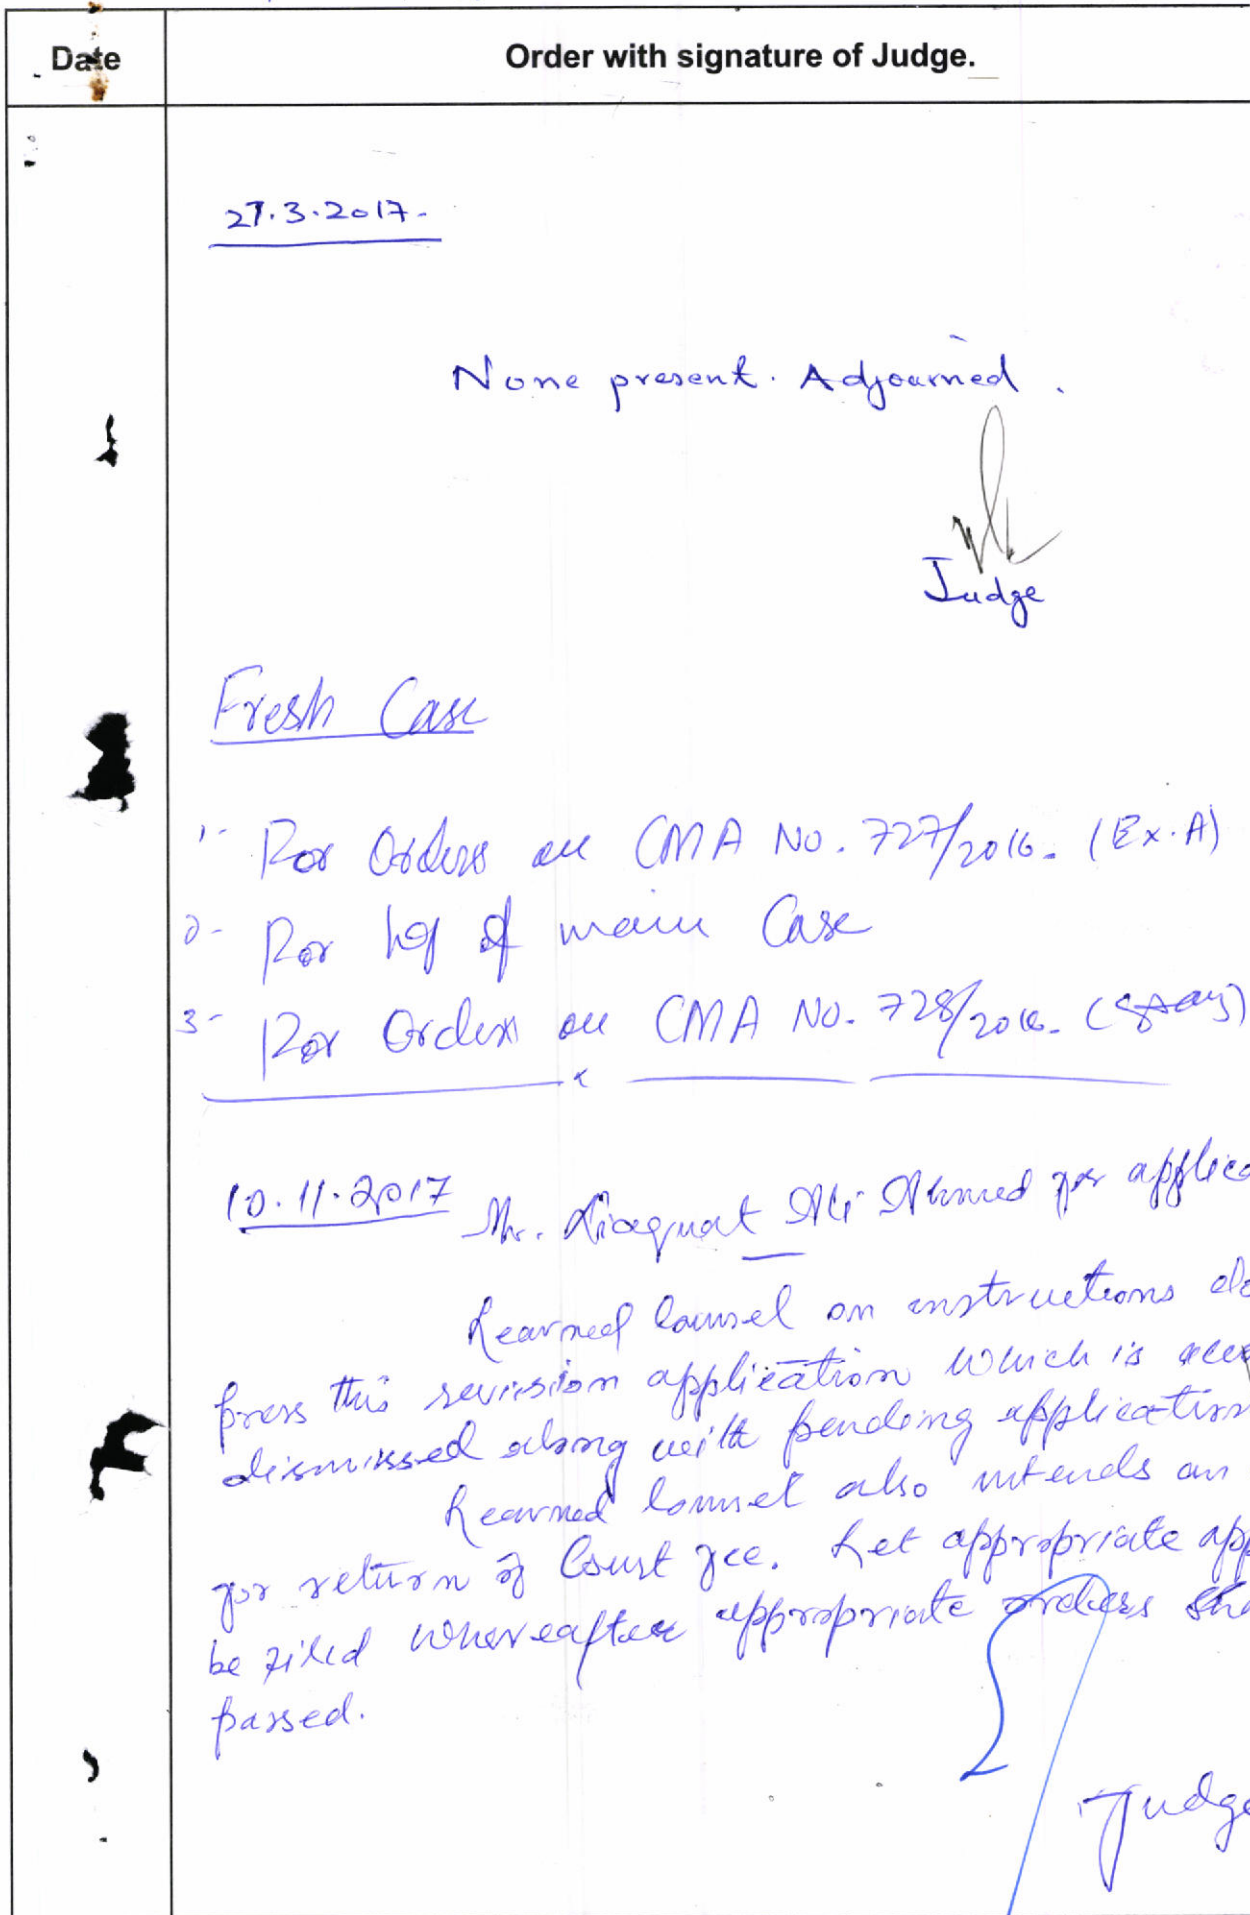 Date
Order with signature of Judge.
27.3.2017.
None present. Adjourned.
Judge
Fresh Case
1- For Orders on CMA No. 727/2016. (Ex.A)
2- For hg of main Case
3- For Orders on CMA No. 728/2016. (Stay)
10.11.2017 Mr. Liaquat Ali Ahmed for applica
Learned Counsel on instructions do
press this revision application which is acc
dismissed along with pending application
Learned Counsel also intends an
for return of Court fee. Let appropriate app
be filed whereafter appropriate orders sha
passed.
Judge